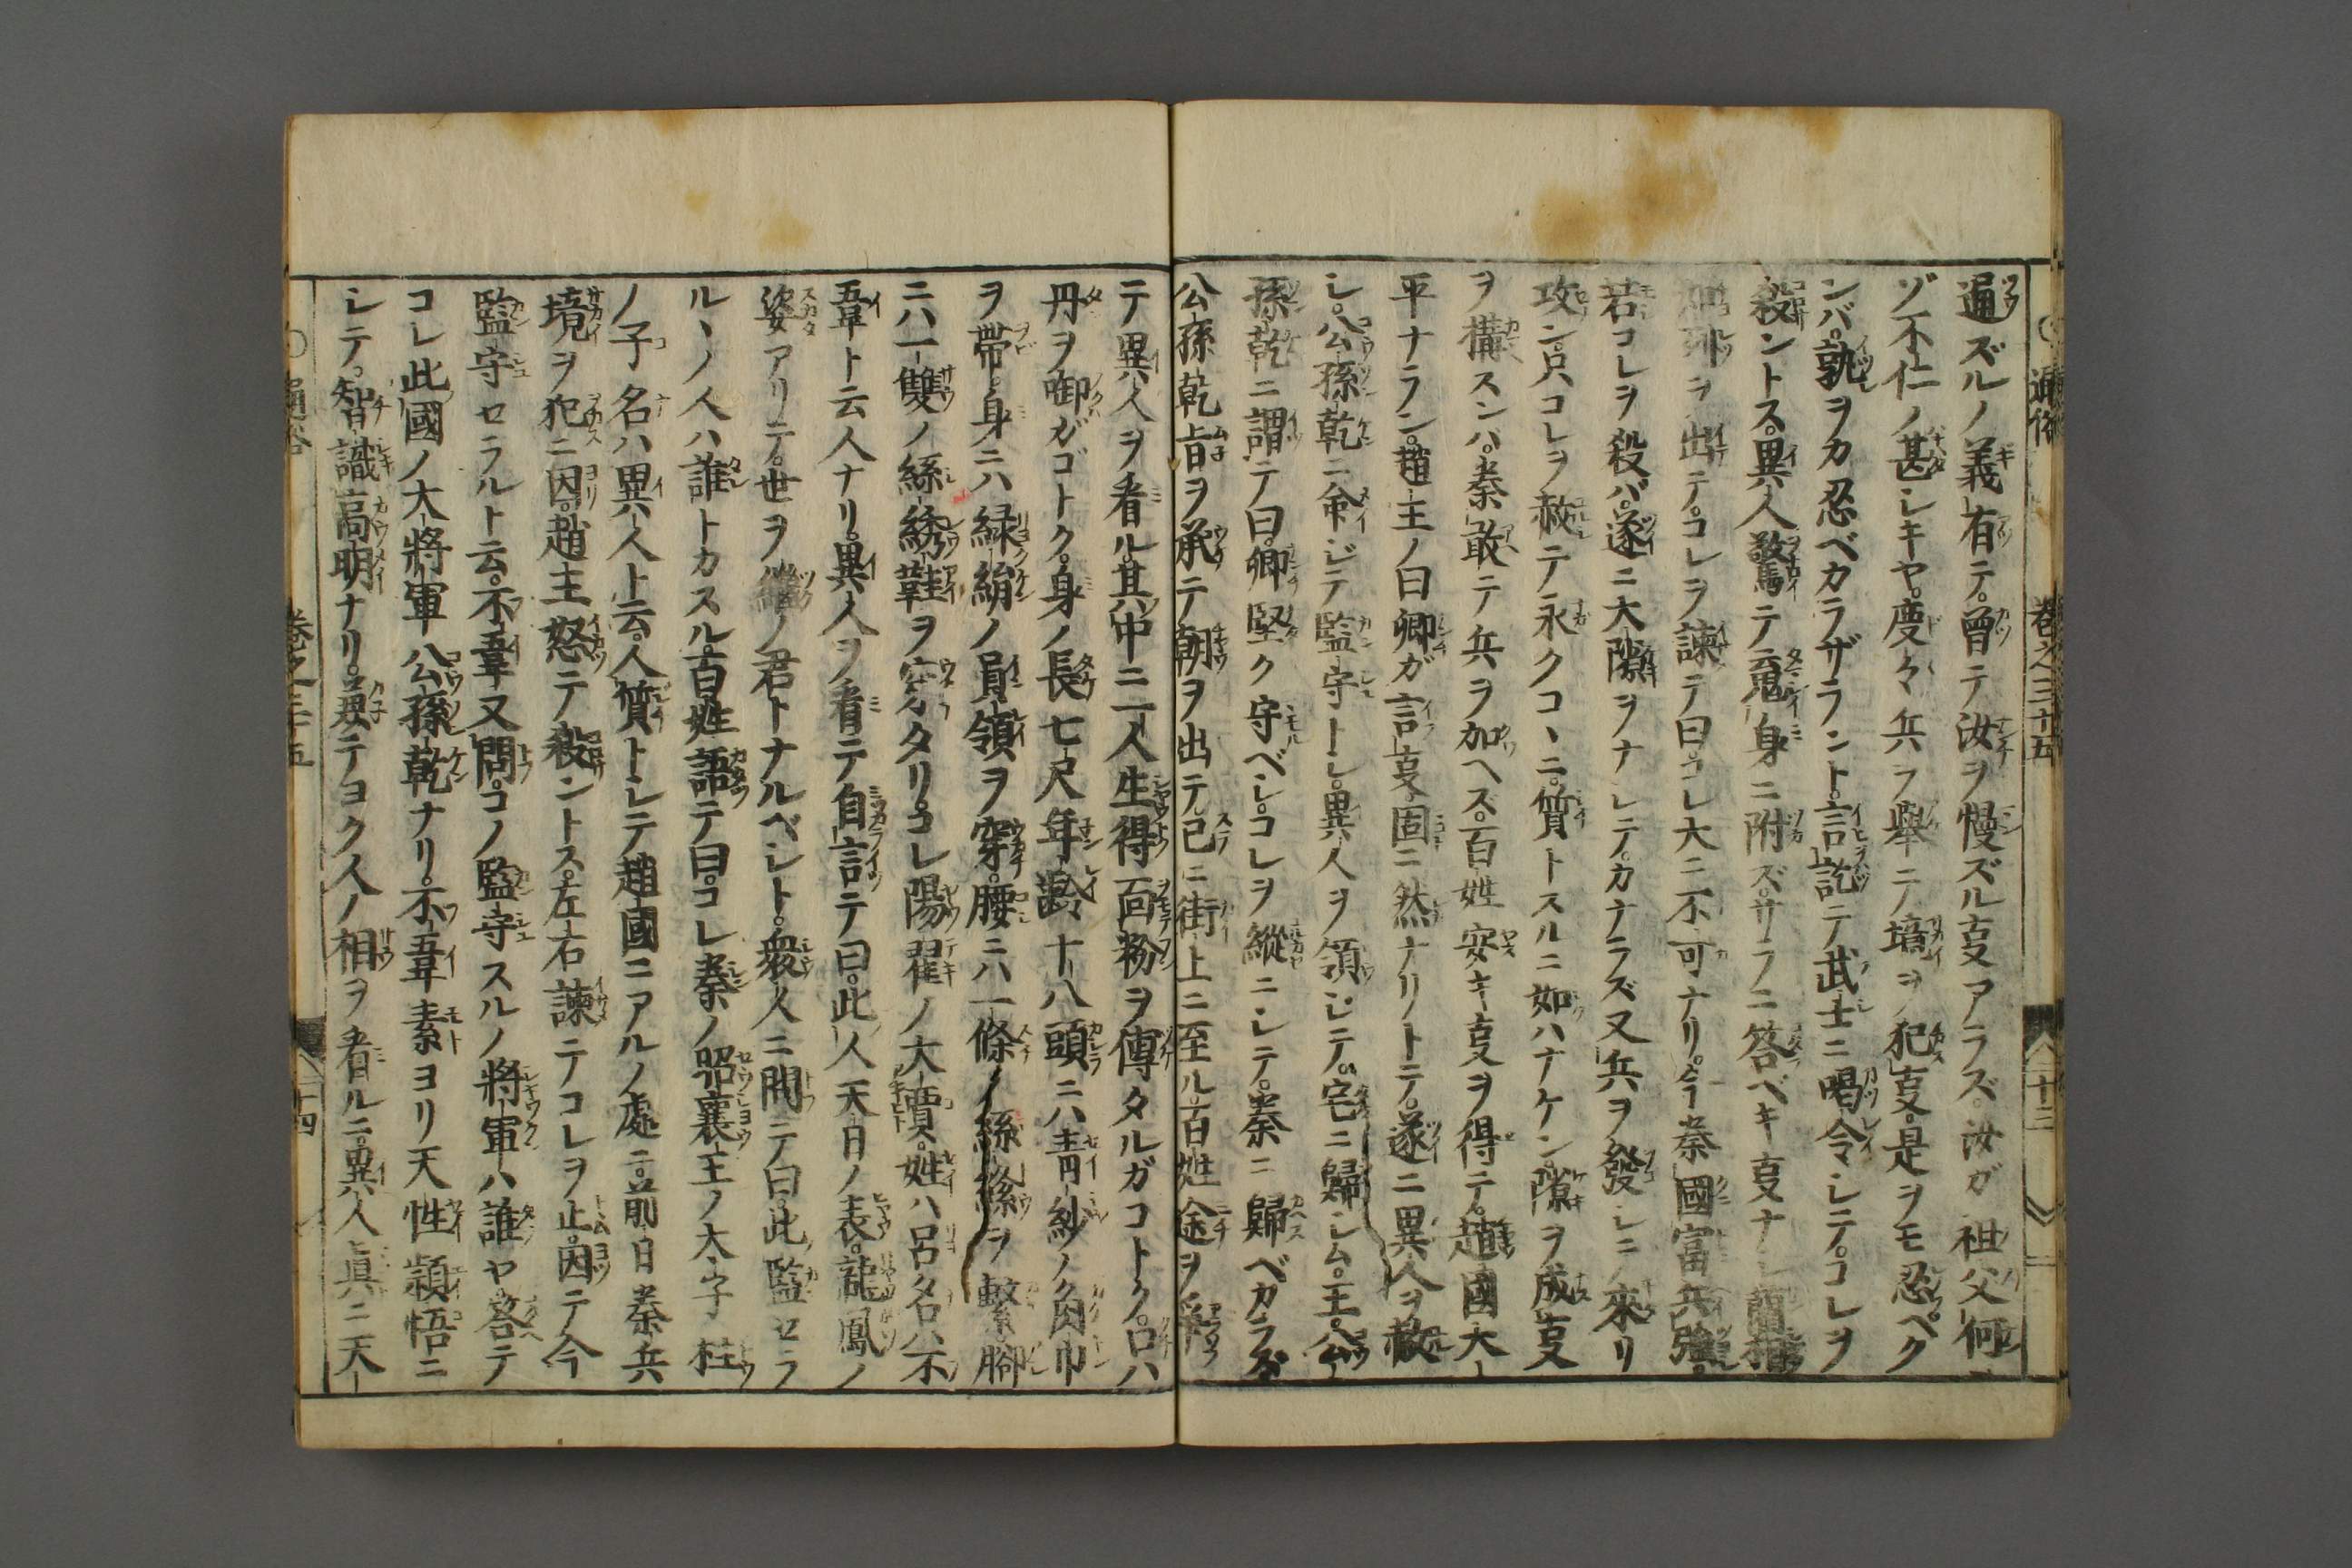 通ズルノ義有テ。曽テ汝ヲ慢ズル叓アラズ。汝ガ祖父何
ゾ不仁ノ甚シキヤ。度々兵ヲ舉テ境ヲ犯叓。是ヲモ忍ベク
ンバ。孰ヲカ忍ベカラザラント。言訖テ武士ニ喝令シテ。コレヲ
殺ントス。異人驚テ䰟身ニ附ズ。サラニ答ベキ叓ナシ藺相
如列ヲ出テ。コレヲ諫テ曰。コレ大ニ不可ナリ。今秦國富兵強。
若コレヲ殺バ。遂ニ大隙ヲナシテ。カナラズ又兵ヲ發シテ來リ
攻ン。只コレヲ赦テ永クコヽニ。質トスルニ如ハナケン。隙ヲ成叓
ヲ搆スンバ。秦敢テ兵ヲ加ヘス。百姓安キ叓ヲ得テ。趙國大
平ナラン。趙王ノ曰卿ガ言叓固ニ然ナリトテ。遂ニ異人ヲ赦
シ。公孫乾ニ命ジテ監守トシ。異人ヲ領シテ。宅ニ歸シム。王公
孫乾ニ謂テ曰。卿堅ク守ベシ。コレヲ縱ニシテ。秦ニ歸ベカラズ
公孫乾旨ヲ承テ朝ヲ出テ。已ニ街上ニ至ル。百姓途ヲ爭
テ異人ヲ看ル。其中ニ一人生得面粉ヲ傳タルガコトク。口ハ
丹ヲ啣ガゴトク。身ノ長七尺年齢十八頭ニハ青紗ノ角巾
ヲ帶。身ニハ緑絹ノ員領ヲ穿。腰ニハ一條ノ絲縧ヲ繫。脚
ニハ一雙ノ絲綉鞋ヲ穿タリ。コレ陽翟ノ大賈。姓ハ呂名ハ不
韋ト云人ナリ。異人ヲ看テ自言テ曰。此人天日ノ表。龍鳳ノ
姿アリテ。世ヲ繼ノ君トナルベシト。衆人ニ問テ曰。此監セラ
ルヽノ人ハ誰トカスル。百姓語テ曰。コレ秦ノ昭襄王ノ太子柱
ノ子名ハ異人ト云。人質トシテ趙國ニアルノ處ニ。前日秦兵
境ヲ犯ニ因。趙主怒テ殺ントス。左右諫テコレヲ止。因テ今
監守セラルト云。不韋又問。コノ監守スルノ將軍ハ誰ヤ。答テ
コレ此國ノ大將軍公孫乾ナリ。不韋素ヨリ天性頴悟ニ
シテ。智識高明ナリ。兼テヨク人ノ相ヲ看ルニ。異人真ニ天
通俗
卷之三十五
二十三
通俗
卷之三十五
二十四